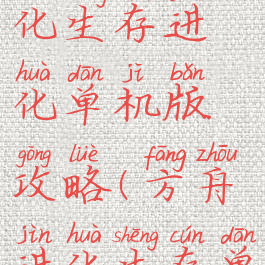 化生存进
huà dān jī bǎn
化单机版
gōng lüè fāng zhōu
攻略(方舟
jìn huà shēng cún dān
进化生存单